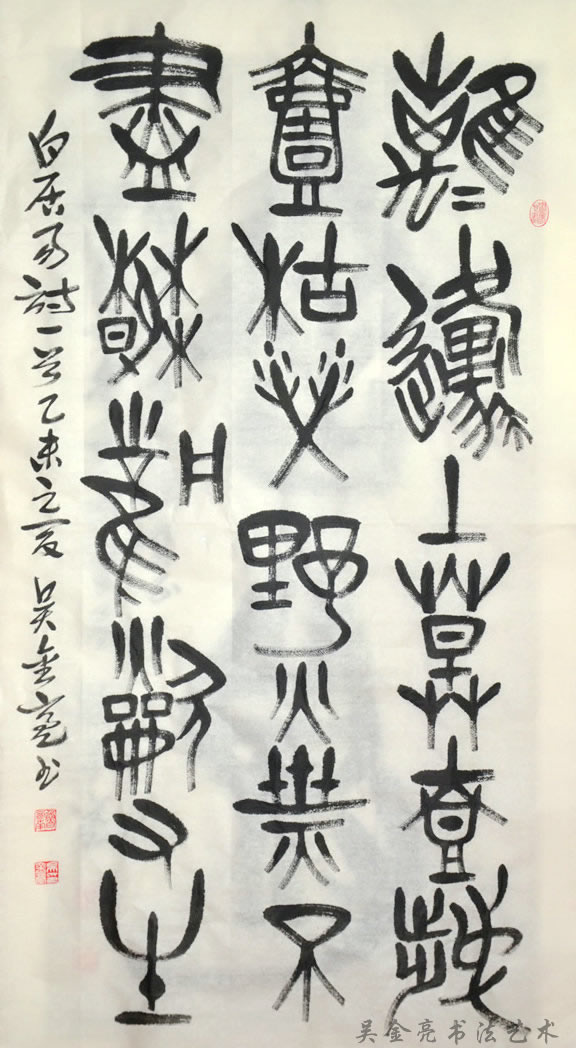 離〻邍上草壹歲
壹枯榮野火燒不
盡春風龡又生
白居易詩一首乙未之夏吴金亮书
吴金亮书法艺术